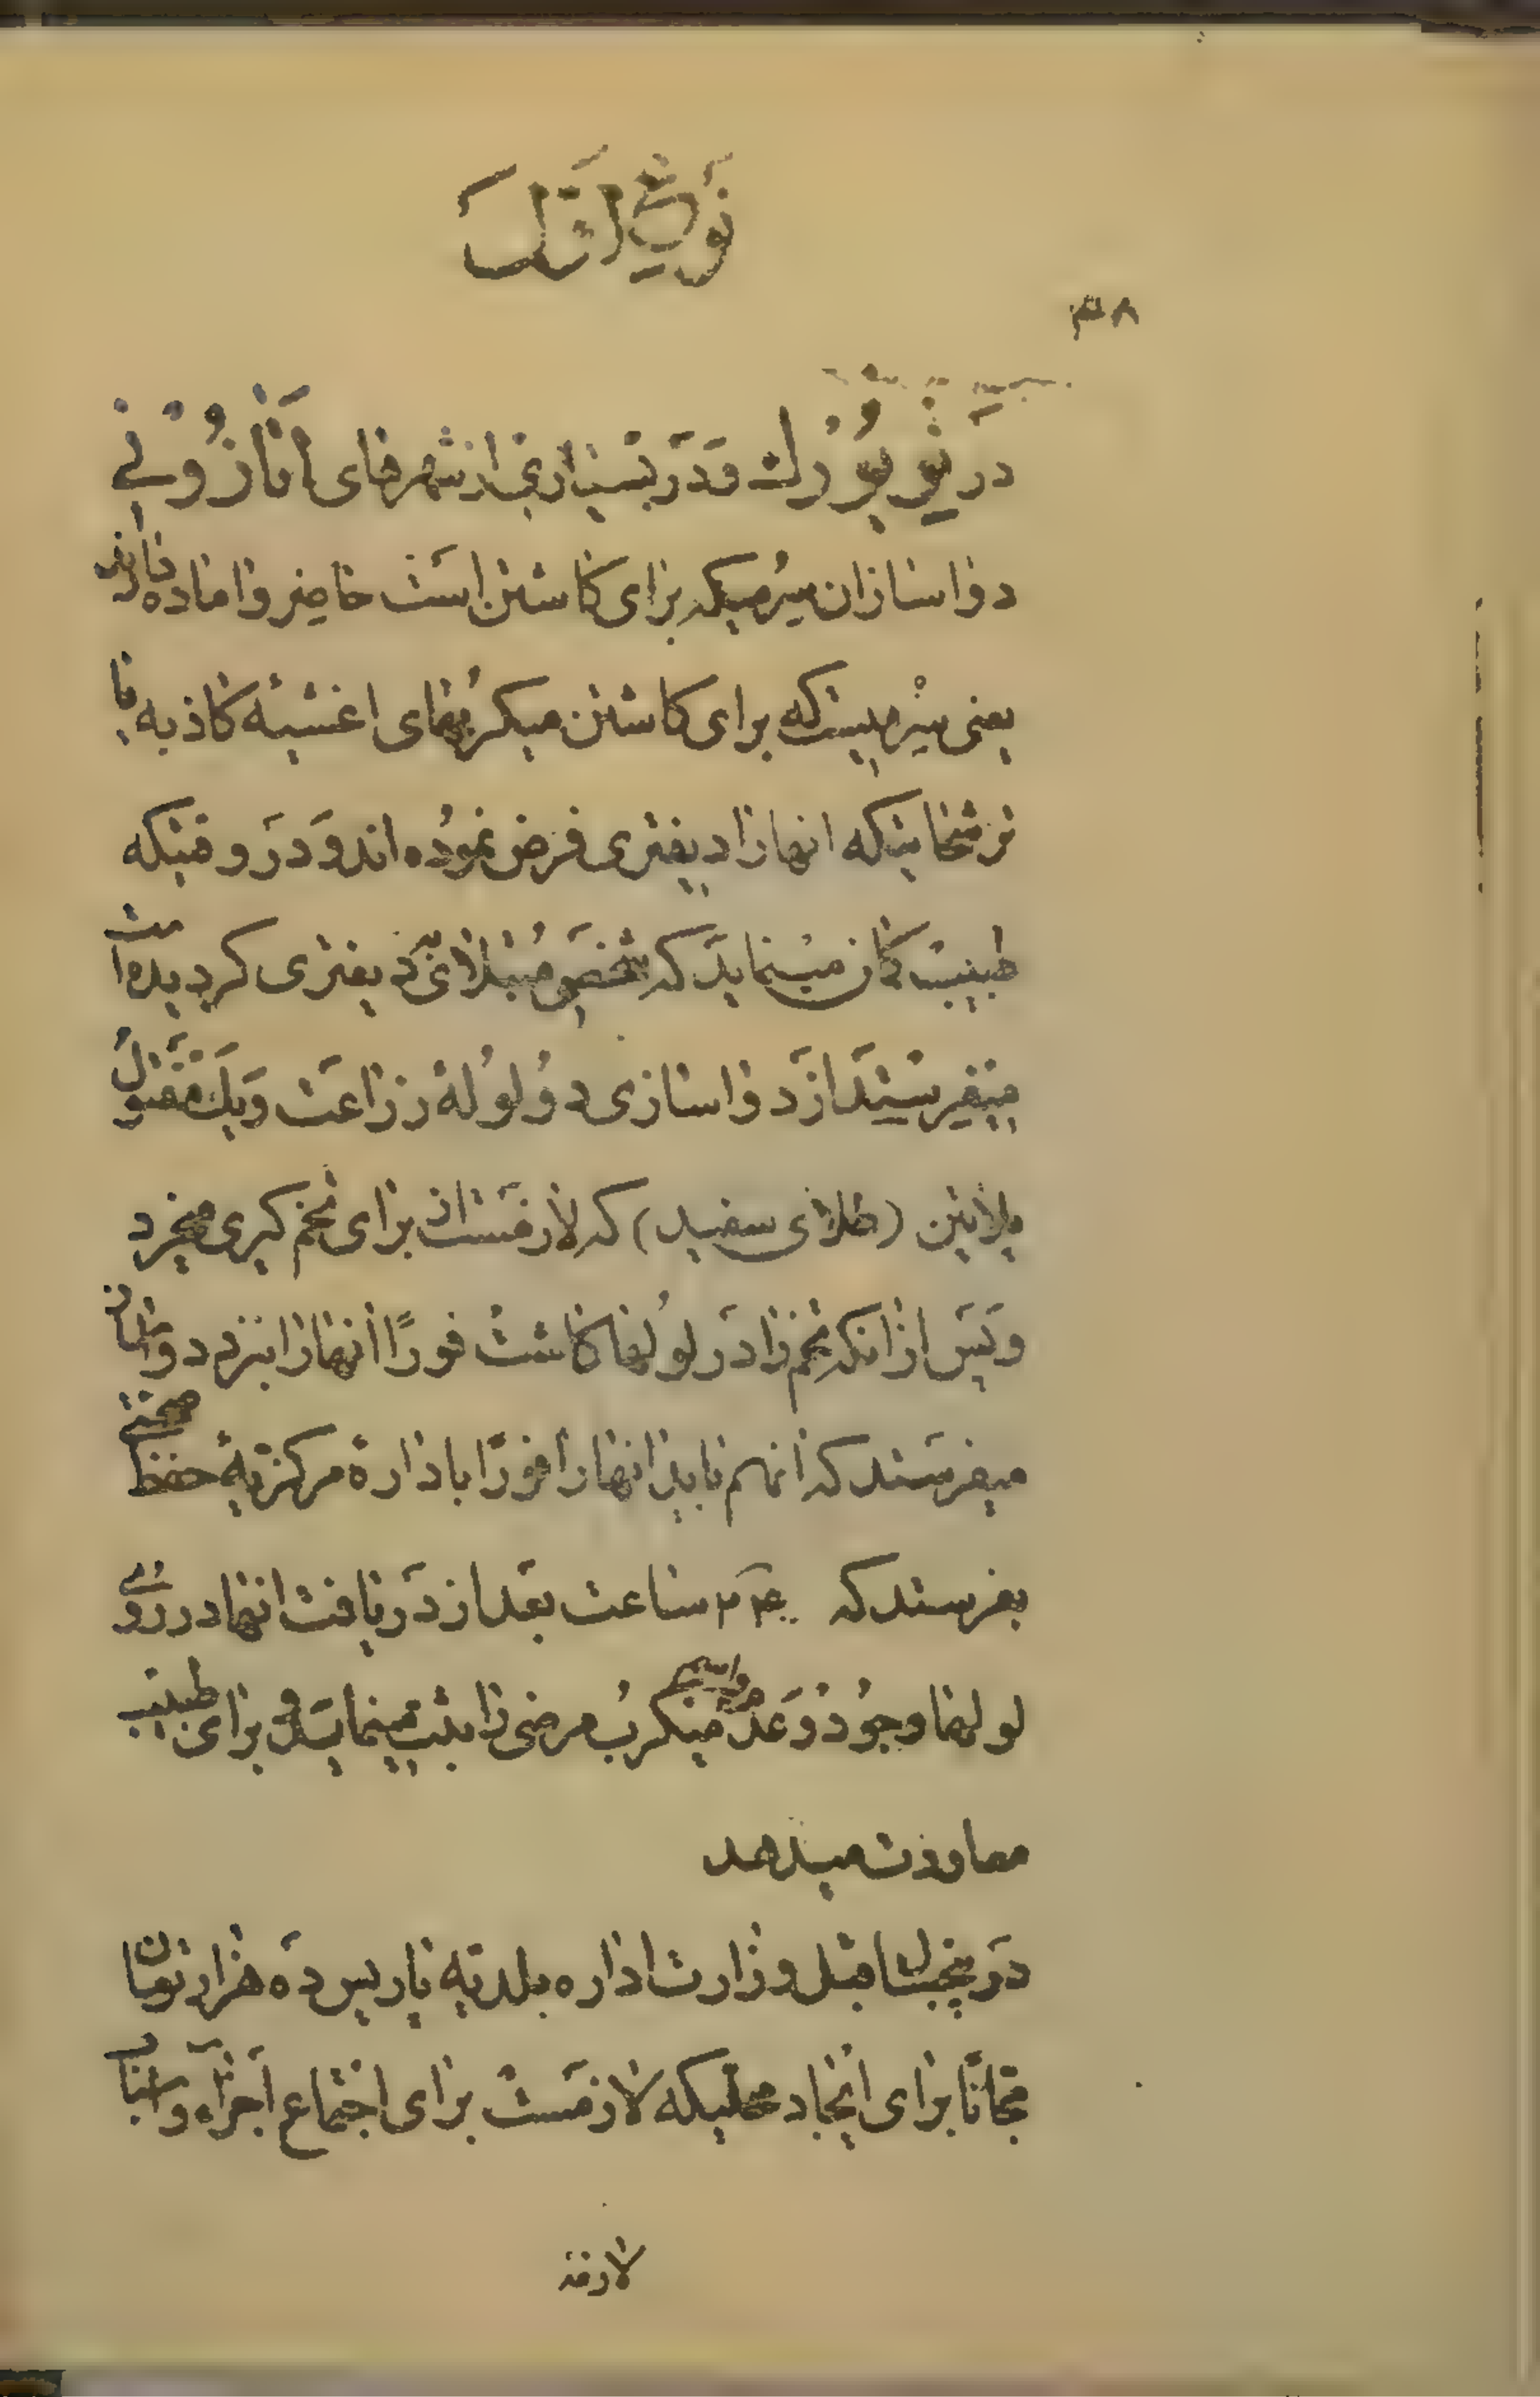 نوع اول
۴۸
در نیویورك و در بسیاری از شهرهای اتازونی
دواسازان سیرمیکه برای کاشتن است حاضر و اماده دارند
یعنی سیرمیست که برای کاشتن میکربهای اغشیه کاذبه یا
ترشحاتیکه انها را دیفتری فرض نموده اند و در وقتیکه
طبیب گمان مینماید که شخصی مبتلای به دیفتری گردیده است
میفرستد از دواسازی دو لوله زراعت و یك مفتول
پلاتین (طلای سفید) که لازمست از برای تخم گیری میخرد
و پس از انکه تخم را در لولها کاشت فورًا انها را بنزد دواساز
میفرستد که انهم باید انها را فورًا باداره مرکزیهٔ حفظ صحتی
بفرستد که ۲۴ ساعت بعد از دریافت انها در روی
لولها وجود و عدم واسم میکرب مرضی را ثبت مینماید و برای طبیب
معاودت میدهد
در پنجسال قبل وزارت اداره بلدیه پاریس ده هزار تومان
مجانًا برای ایجاد محلیکه لازمست برای اجتماع اجزاء و اسباب
لازمه